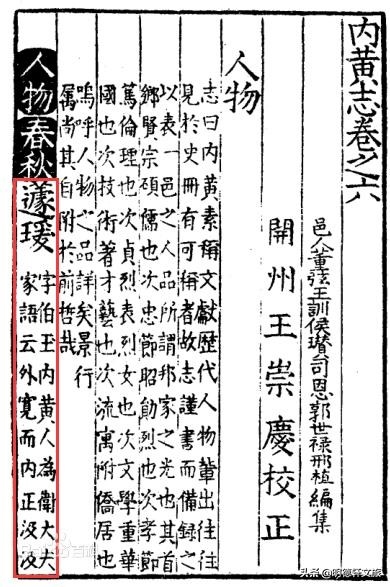 内黄志卷之六
邑人董弦王訓侯瓚司恩郭世禄邢植編集
開州王崇慶校正
人物
志曰内黄素稱文獻歷代人物輩出往往
見於史冊有可稱者故志謹書而備録之
以表一邑之人品所謂邦家之光也其首
鄉賢宗碩儒也次忠節昭勛烈也次孝節
篤倫理也次貞烈表烈女也次文學重華
國也次技術著才藝也次流寓附僑居也
嗚呼人物之品詳矣景行
厲尚其自附於前哲哉
人物春秋蘧瑗
字伯王内黄人為衛大大
家語云外寛而内正汲汲
Bai百科
头条